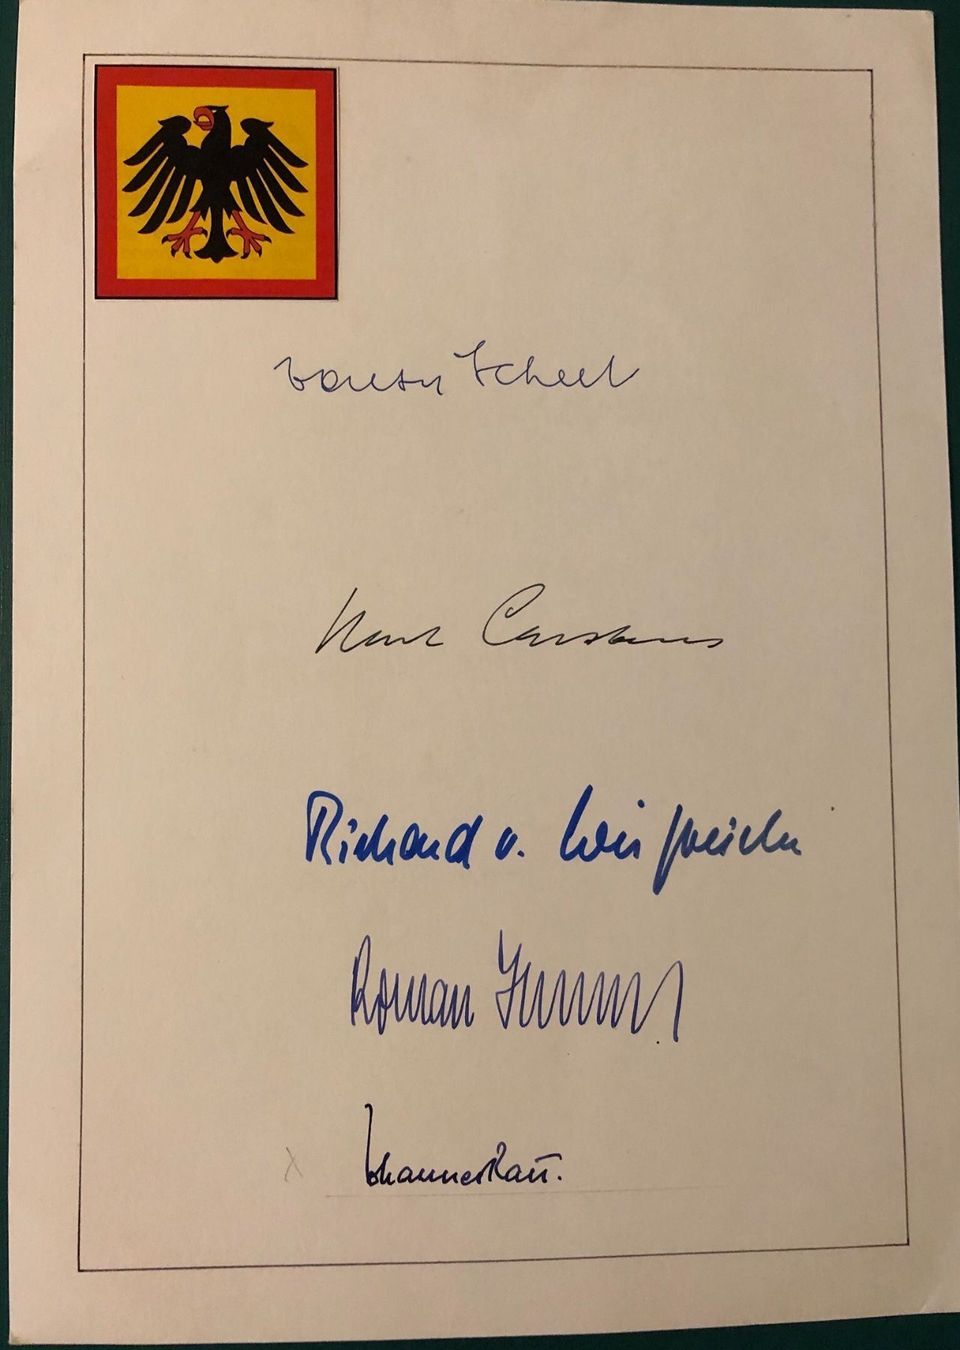 Walter Scheel
Karl Carstens
Richard v. Weizsäcker
Roman Herzog
Johannes Rau.